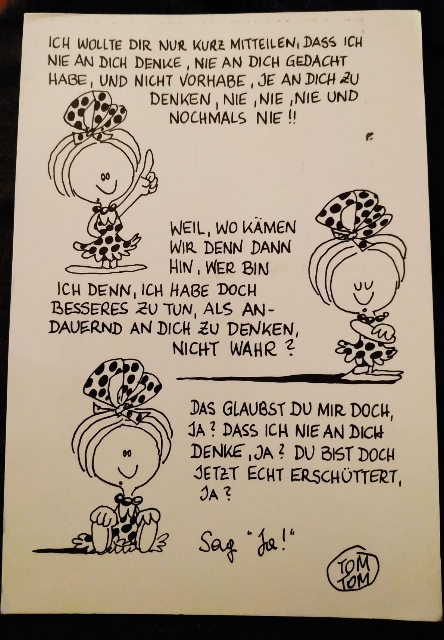 ICH WOLLTE DIR NUR KURZ MITTEILEN, DASS ICH
NIE AN DICH DENKE, NIE AN DICH GEDACHT
HABE, UND NICHT VORHABE, JE AN DICH ZU
DENKEN, NIE, NIE, NIE UND
NOCHMALS NIE!!
WEIL, WO KÄMEN
WIR DENN DANN
HIN, WER BIN
ICH DENN, ICH HABE DOCH
BESSERES ZU TUN, ALS AN-
DAUERND AN DICH ZU DENKEN,
NICHT WAHR?
DAS GLAUBST DU MIR DOCH,
JA? DASS ICH NIE AN DICH
DENKE, JA? DU BIST DOCH
JETZT ECHT ERSCHÜTTERT,
JA?
Sag "Ja!"
TOM
TOM